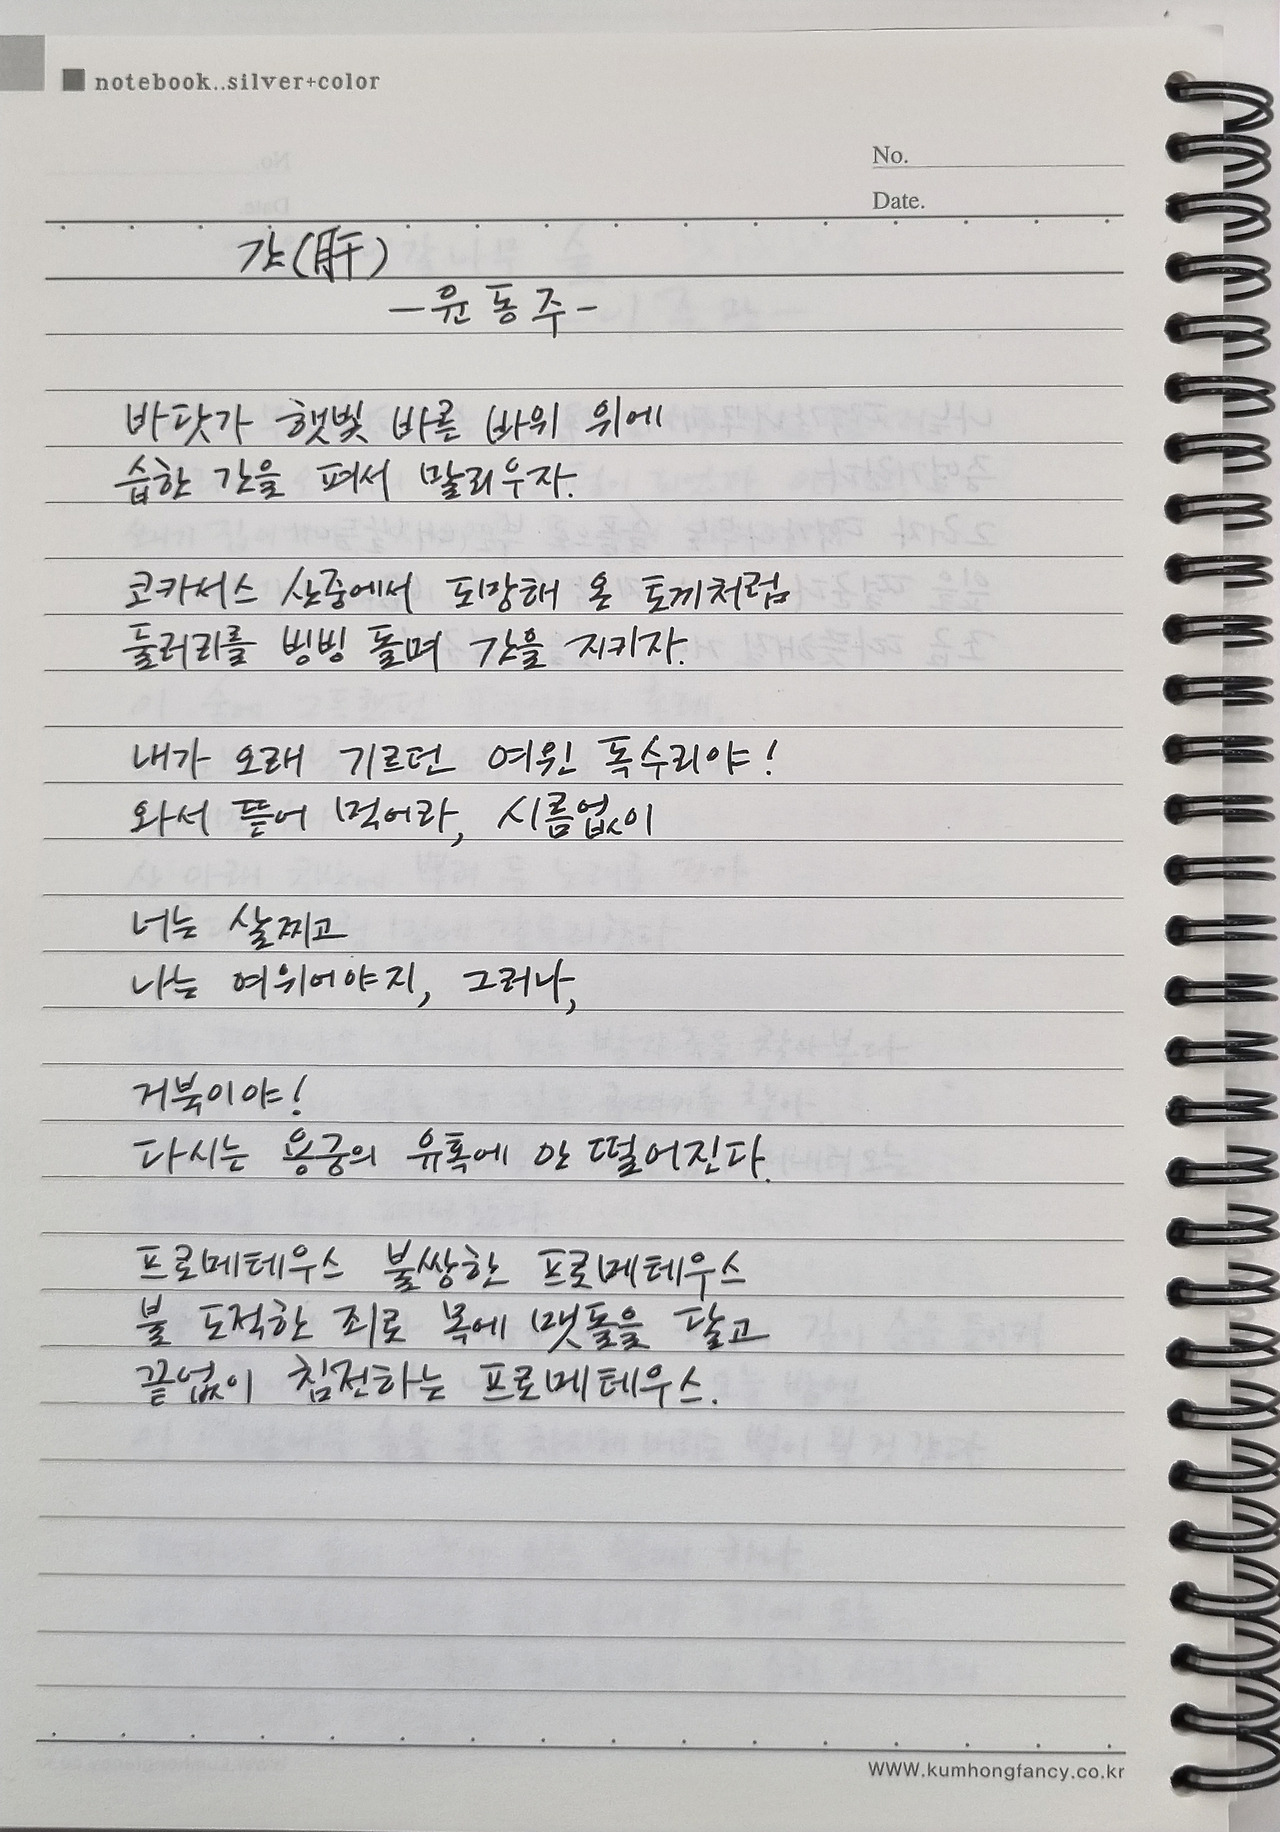 notebook..silver+color
No.
Date.
간(肝)
-윤동주-
바닷가 햇빛 바른 바위 위에
습한 간을 펴서 말리우자.
코카서스 산중에서 도망해 온 토끼처럼
둘러리를 빙빙 돌며 간을 지키자.
내가 오래 기르던 여윈 독수리야!
와서 뜯어 먹어라, 시름없이
너는 살찌고
나는 여위어야지, 그러나,
거북이야!
다시는 용궁의 유혹에 안 떨어진다.
프로메테우스 불쌍한 프로메테우스
불 도적한 죄로 목에 맷돌을 달고
끝없이 침전하는 프로메테우스.
www.kumhongfancy.co.kr